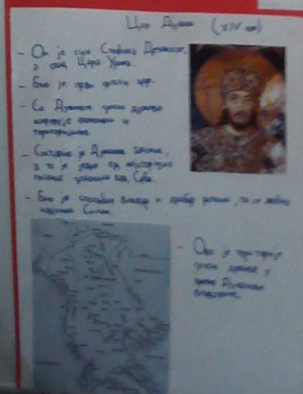 Цар Душан (XIV век)
- Он је син Стефана Дечанског,
а отац Цара Уроша.
- Био је први српски цар.
- Са Душаном српска држава
и
територијално.
- Саставио је Душанов законик,
а то је један од најстаријих
писаних законика код Срба.
- Био је способан владар и храбар ратник, па је добио
надимак Силни.
- Ово је територија
српске државе у
време Душанове
владавине.